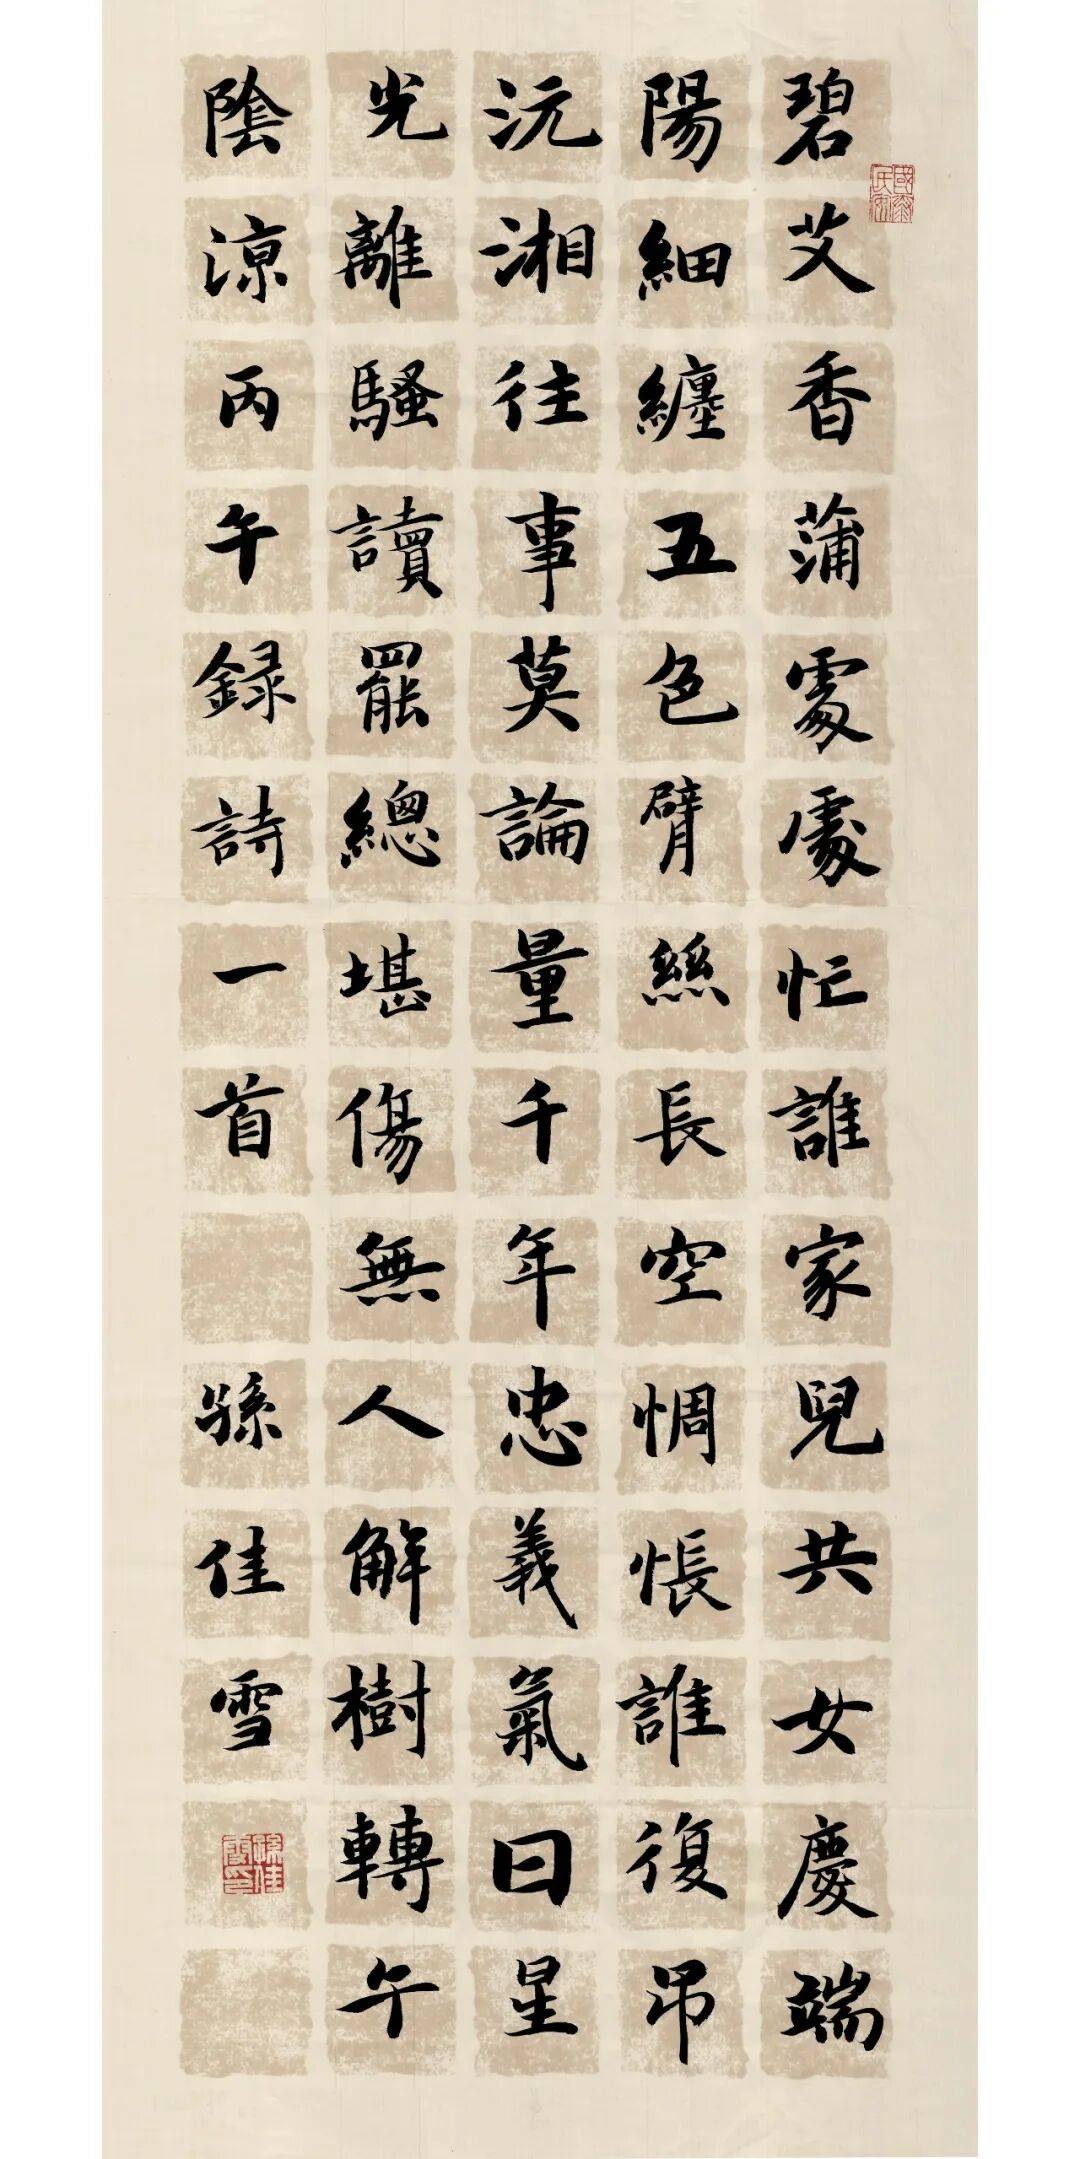 碧艾香蒲處處忙誰家兒共女慶端
陽細纏五色臂絲長空惆悵誰復吊
沅湘往事莫論量千年忠義氣日星
光離騷讀罷總堪傷無人解樹轉午
陰涼丙午録詩一首 孫佳雪
國泰民安
孫佳雪印